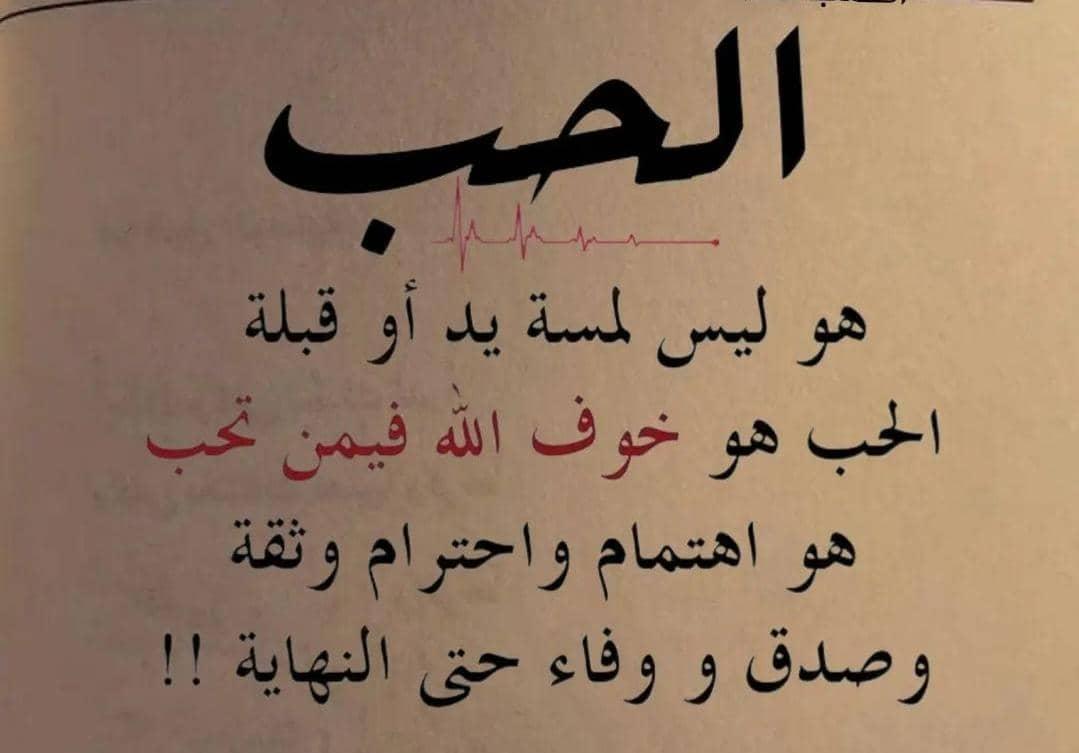 الحب
هو ليس لمسة يد أو قبلة
الحب هو خوف الله فيمن تحب
هو اهتمام واحترام وثقة
وصدق و وفاء حتى النهاية !!